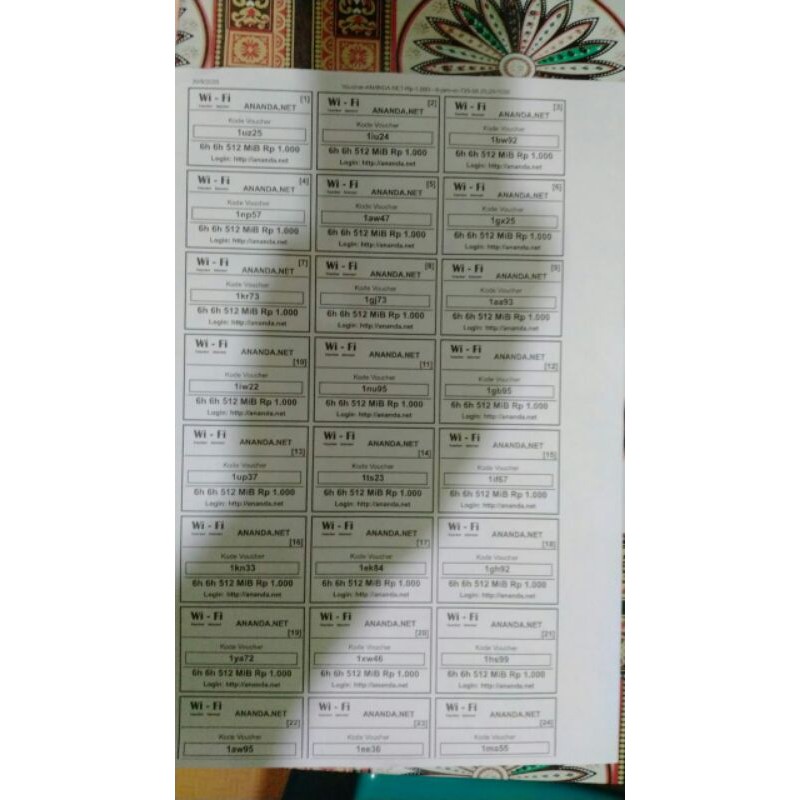 Wi - Fi ANANDA.NET [1]
Kode Voucher
1uz25
6h 6h 512 MiB Rp 1.000
Login: http://ananda.net
Wi - Fi ANANDA.NET [2]
Kode Voucher
1iu24
6h 6h 512 MiB Rp 1.000
Login: http://ananda.net
Wi - Fi ANANDA.NET [3]
Kode Voucher
1bw92
6h 6h 512 MiB Rp 1.000
Login: http://ananda.net
Wi - Fi ANANDA.NET [4]
Kode Voucher
1np57
6h 6h 512 MiB Rp 1.000
Login: http://ananda.net
Wi - Fi ANANDA.NET [5]
Kode Voucher
1aw47
6h 6h 512 MiB Rp 1.000
Login: http://ananda.net
Wi - Fi ANANDA.NET [6]
Kode Voucher
1gx25
6h 6h 512 MiB Rp 1.000
Login: http://ananda.net
Wi - Fi ANANDA.NET [7]
Kode Voucher
1kr73
6h 6h 512 MiB Rp 1.000
Login: http://ananda.net
Wi - Fi ANANDA.NET [8]
Kode Voucher
1gj73
6h 6h 512 MiB Rp 1.000
Login: http://ananda.net
Wi - Fi ANANDA.NET [9]
Kode Voucher
1aa93
6h 6h 512 MiB Rp 1.000
Login: http://ananda.net
Wi - Fi ANANDA.NET [10]
Kode Voucher
1iw22
6h 6h 512 MiB Rp 1.000
Login: http://ananda.net
Wi - Fi ANANDA.NET [11]
Kode Voucher
1nu95
6h 6h 512 MiB Rp 1.000
Login: http://ananda.net
Wi - Fi ANANDA.NET [12]
Kode Voucher
1gb95
6h 6h 512 MiB Rp 1.000
Login: http://ananda.net
Wi - Fi ANANDA.NET [13]
Kode Voucher
1up37
6h 6h 512 MiB Rp 1.000
Login: http://ananda.net
Wi - Fi ANANDA.NET [14]
Kode Voucher
1ts23
6h 6h 512 MiB Rp 1.000
Login: http://ananda.net
Wi - Fi ANANDA.NET [15]
Kode Voucher
1if67
6h 6h 512 MiB Rp 1.000
Login: http://ananda.net
Wi - Fi ANANDA.NET [16]
Kode Voucher
1kn33
6h 6h 512 MiB Rp 1.000
Login: http://ananda.net
Wi - Fi ANANDA.NET [17]
Kode Voucher
1ek84
6h 6h 512 MiB Rp 1.000
Login: http://ananda.net
Wi - Fi ANANDA.NET [18]
Kode Voucher
1gh92
6h 6h 512 MiB Rp 1.000
Login: http://ananda.net
Wi - Fi ANANDA.NET [19]
Kode Voucher
1ya72
6h 6h 512 MiB Rp 1.000
Login: http://ananda.net
Wi - Fi ANANDA.NET [20]
Kode Voucher
1xw46
6h 6h 512 MiB Rp 1.000
Login: http://ananda.net
Wi - Fi ANANDA.NET [21]
Kode Voucher
1hs99
6h 6h 512 MiB Rp 1.000
Login: http://ananda.net
Wi - Fi ANANDA.NET [22]
Kode Voucher
1aw95
Wi - Fi ANANDA.NET [23]
Kode Voucher
Wi - Fi ANANDA.NET [24]
Kode Voucher